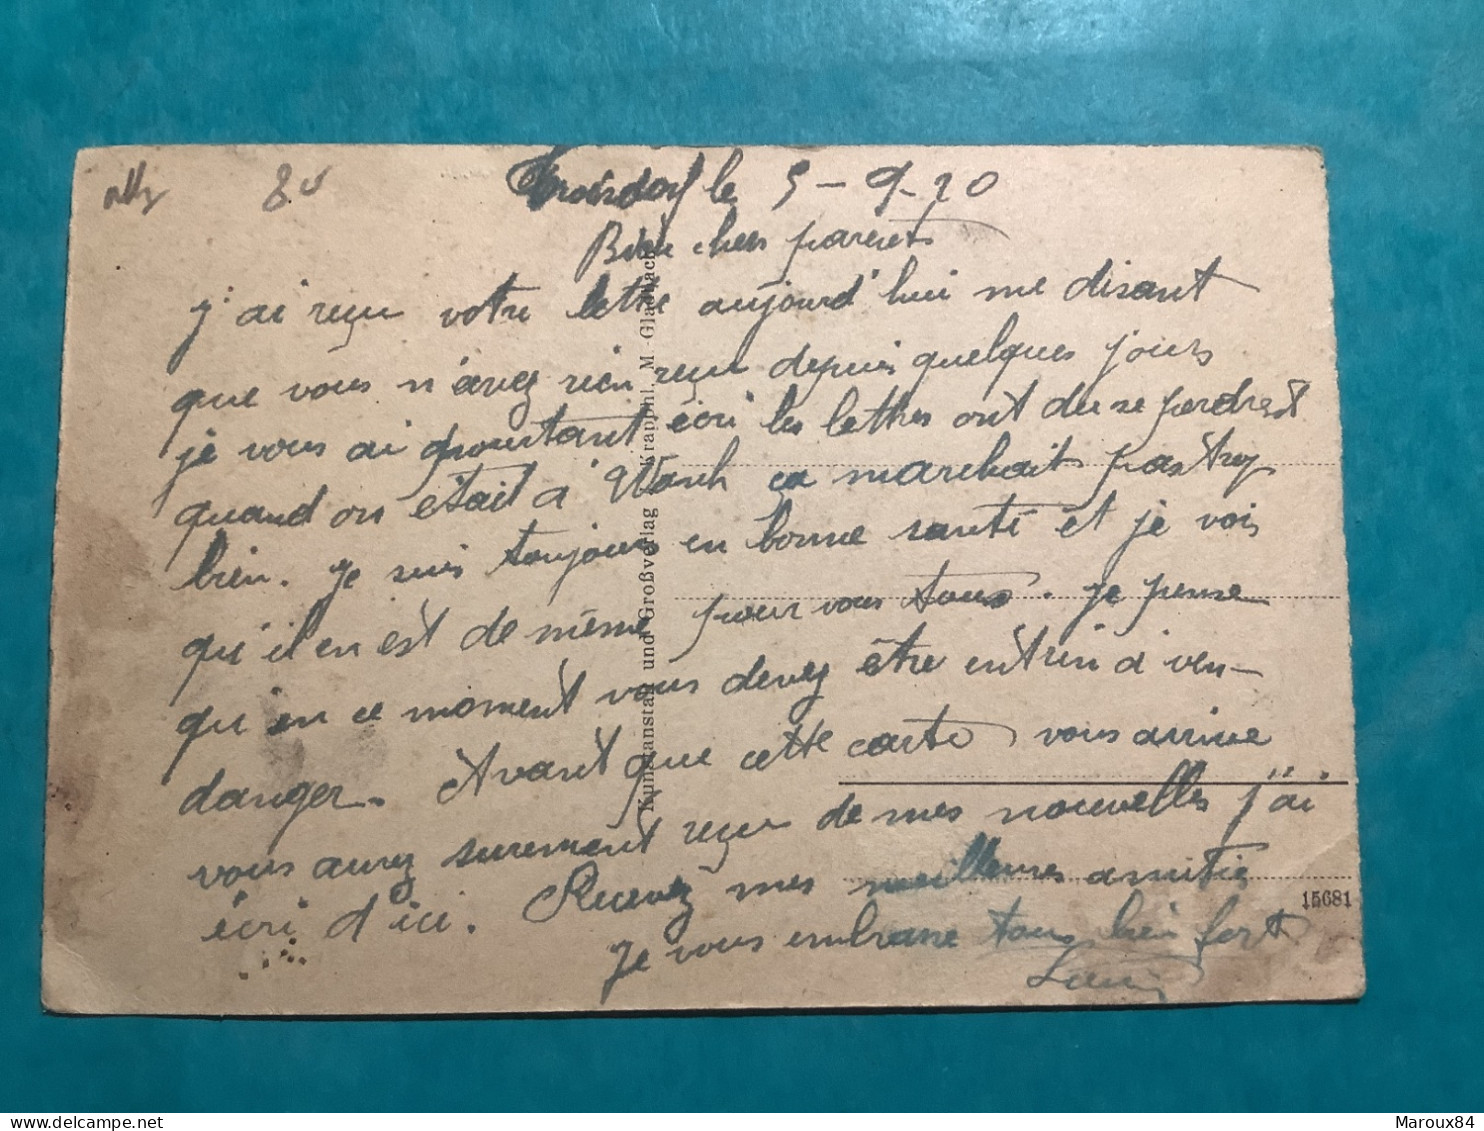 80
Troisdorf le 5-9-20
Bien chers parents
j'ai reçu votre lettre aujourd'hui me disant
que vous n'avez rien reçu depuis quelques jours
je vous ai pourtant écri les lettres ont du se perdre
quand on était à Wanh ça marchait pas trop
bien. Je suis toujours en bonne santé et je vois
qu'il en est de même pour vous tous. je pense
qu'en ce moment vous devez être entrin à ven-
danger. Avant que cette carte vous arrive
vous aurez surement reçu de mes nouvelles j'ai
écri d'ici. Recevez mes meilleures amitiés
Je vous embrasse tous bien fort
Kunstanstalt und Großverlag Krapohl, M.-Gladbach
15681
Maroux84